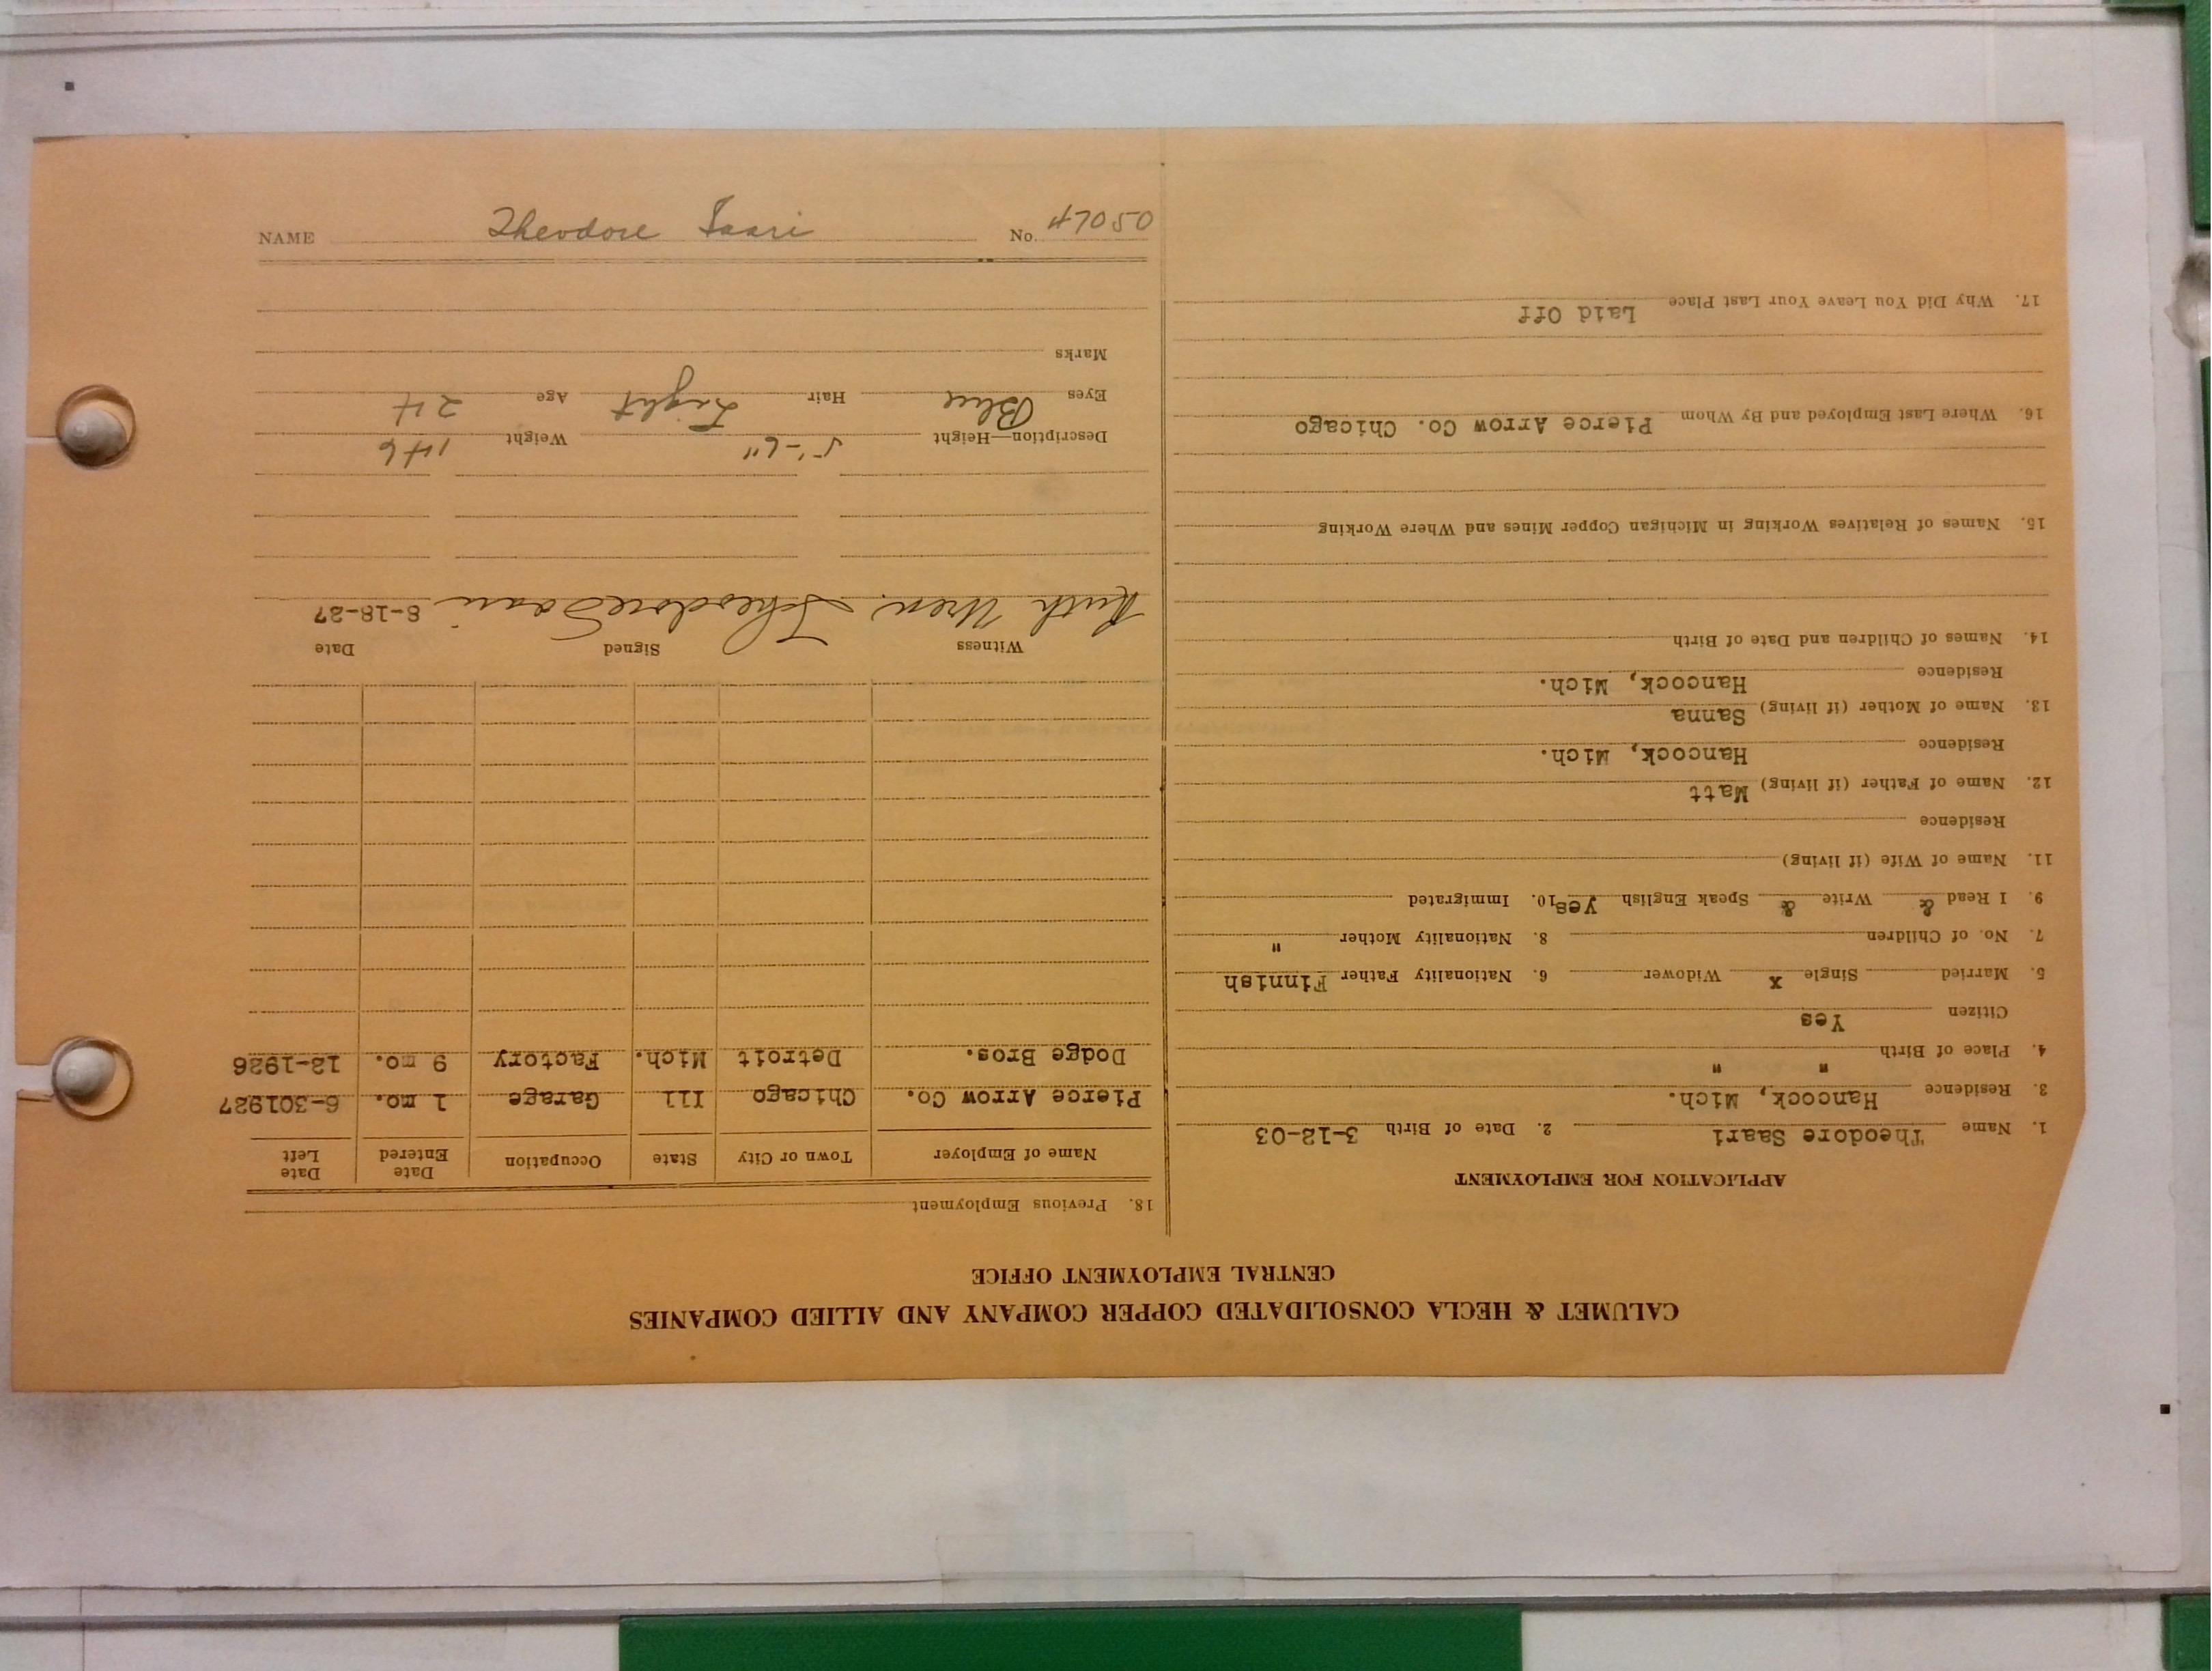 CALUMET & HECLA CONSOLIDATED COPPER COMPANY AND ALLIED COMPANIES
CENTRAL EMPLOYMENT OFFICE
APPLICATION FOR EMPLOYMENT
1. Name Theodore Saari 2. Date of Birth 3-12-03
3. Residence Hancock, Mich.
4. Place of Birth " "
Citizen Yes
5. Married Single x Widower 6. Nationality Father Finnish
7. No. of Children 8. Nationality Mother "
9. I Read & Write & Speak English Yes 10. Immigrated
11. Name of Wife (if living)
Residence
12. Name of Father (if living) Matt
Residence Hancock, Mich.
13. Name of Mother (if living) Sanna
Residence Hancock, Mich.
14. Names of Children and Date of Birth
15. Names of Relatives Working in Michigan Copper Mines and Where Working
16. Where Last Employed and By Whom Pierce Arrow Co. Chicago
17. Why Did You Leave Your Last Place Laid Off
18. Previous Employment
Name of Employer Town or City State Occupation Date Entered Date Left
Pierce Arrow Co. Chicago Ill Garage 1 mo. 6-301927
Dodge Bros. Detroit Mich. Factory 9 mo. 12-1926
Witness Signed Date
Ruth Uren. Theodore Saari 8-18-27
Description—Height 5'-6" Weight 146
Eyes Blue Hair Light Age 24
Marks
NAME Theodore Saari No. 47050